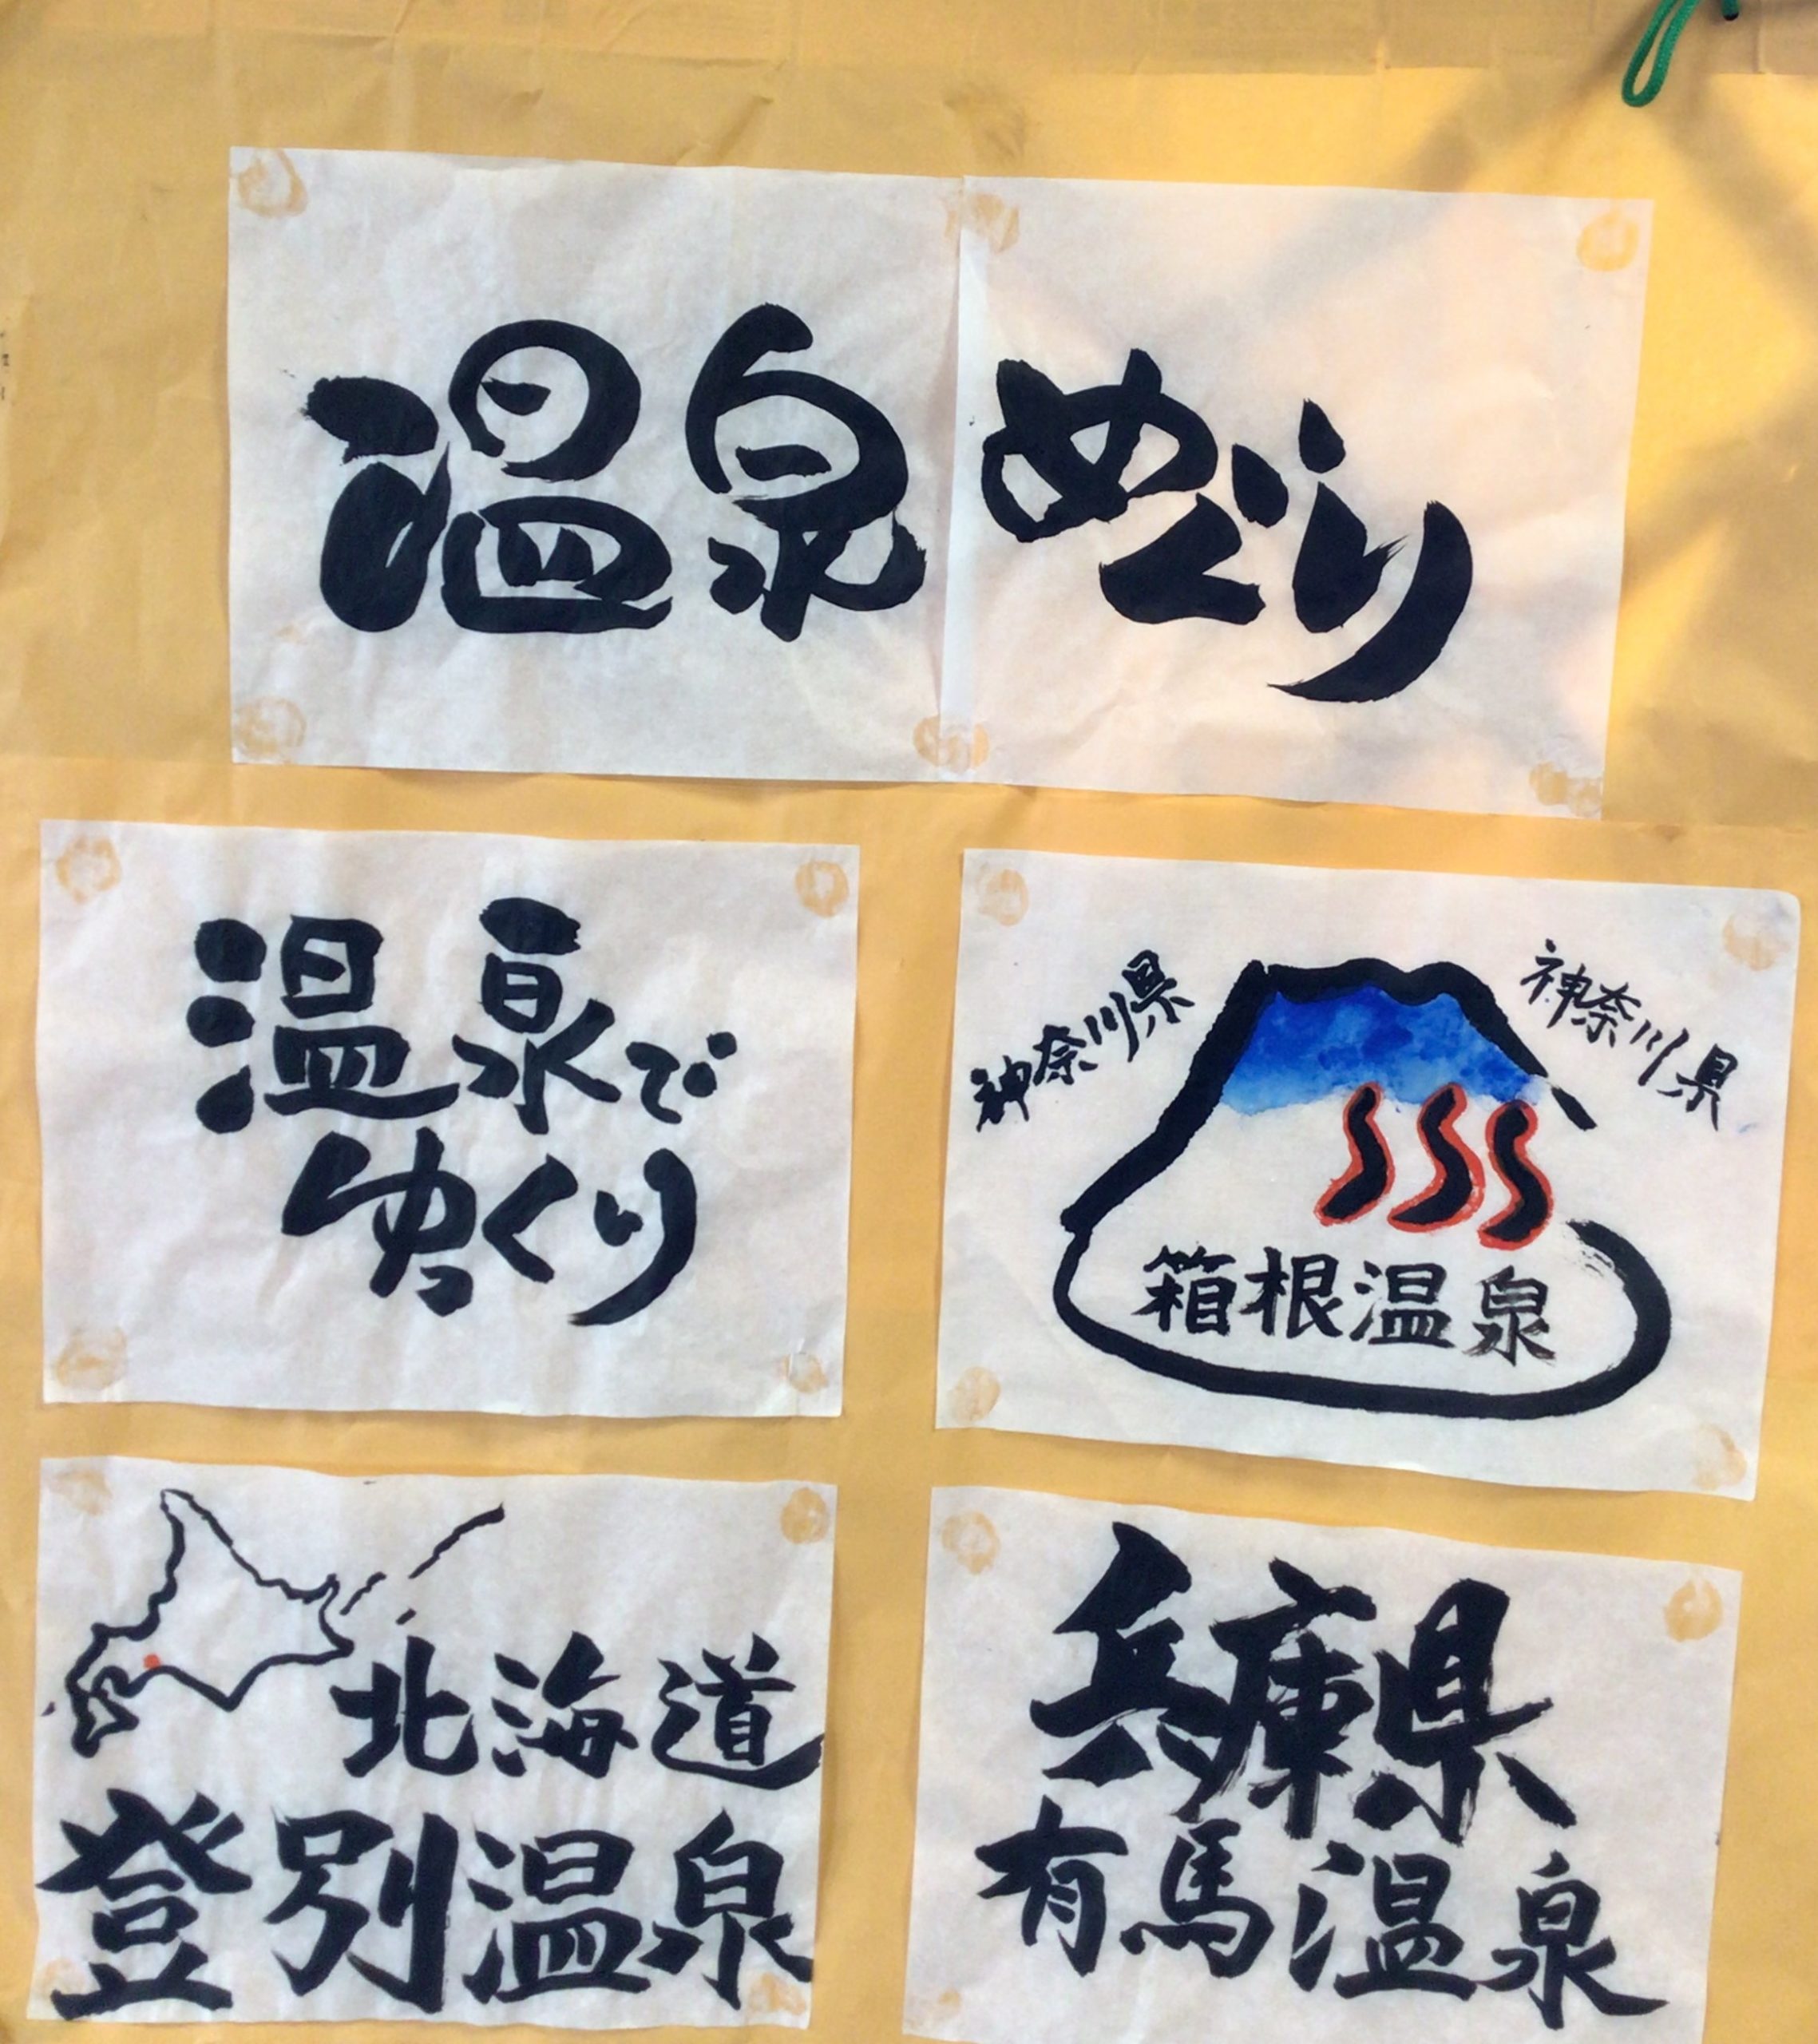 温泉めぐり
温泉で
ゆっくり
神奈川県
神奈川県
箱根温泉
北海道
登別温泉
兵庫県
有馬温泉